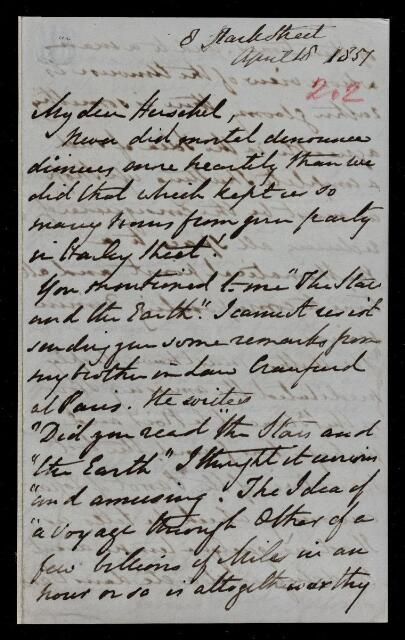 8 Stark Street
April 18 1851
202
My dear Herschel,
Never did mortal denounce
dinners more heartily than we
did that which kept us so
many hours from your party
in Harley Street!
You mentioned to me "The Stars
and the Earth." I cannot resist
sending you some remarks from
my brother in law Craufurd
at Paris. He writes
"Did you read "the Stars and
"the Earth" I thought it curious
"and amusing. The Idea of
"a voyage through Ether of a
few billions of Miles in an
hour or so is altogether worthy